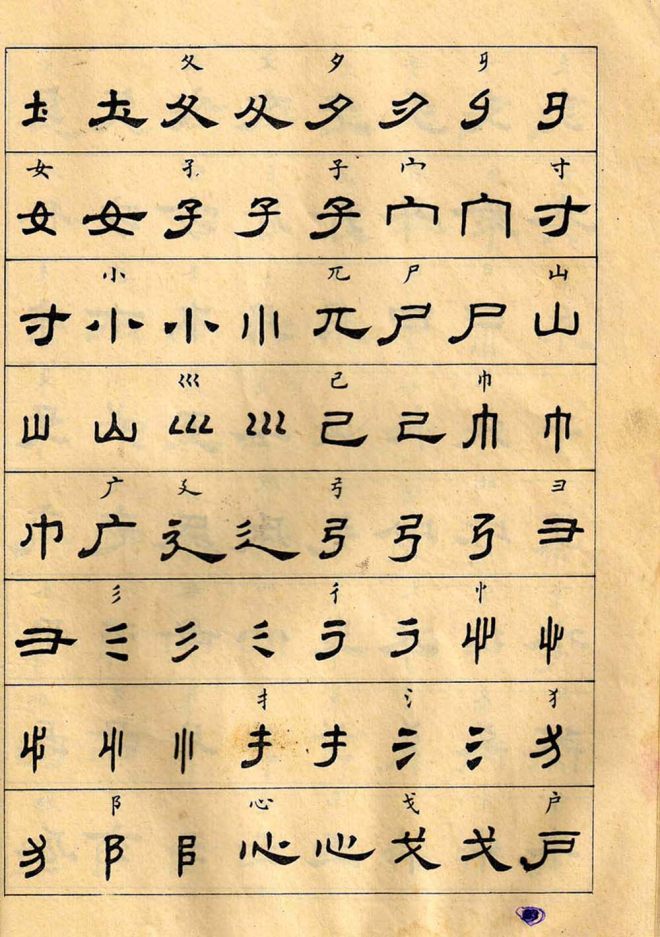 夂 夕
圡 圡 夂 夂 夕 夕
女 孑 子 宀 寸
女 女 孑 孑 子 宀 宀 寸
小 兀 尸 山
寸 小 小 小 兀 尸 尸 山
巛 己 巾
山 山 巛 巛 己 己 巾 巾
广 廴 弓 彐
巾 广 廴 廴 弓 弓 弓 彐
彡 彳 忄
彐 彡 彡 彡 彳 彳 忄 忄
扌 氵 犭
忄 忄 忄 扌 扌 氵 氵 犭
阝 心 戈 户
犭 阝 阝 心 心 戈 戈 户